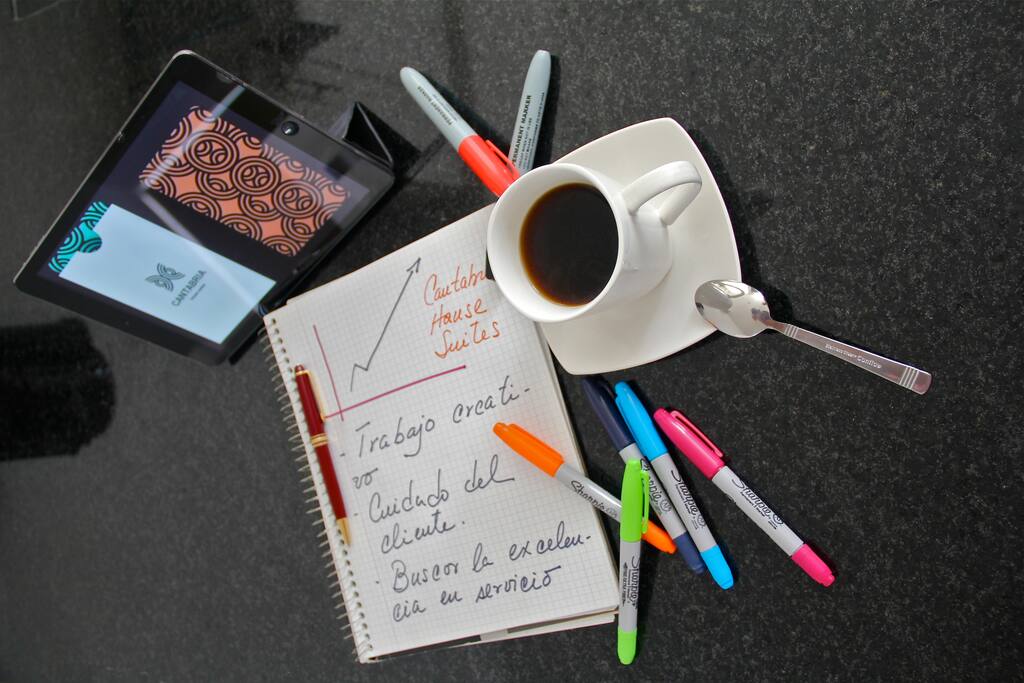 CANTABRIA
PERMANENT MARKER
PERMANENT MARKER
Cantabr
House
Suites
- Trabajo creati-
vo
- Cuidado del
cliente.
- Buscar la excelen-
cia en servicio
Sharpie
Sharpie
Sharpie
Sharpie
Sharpie